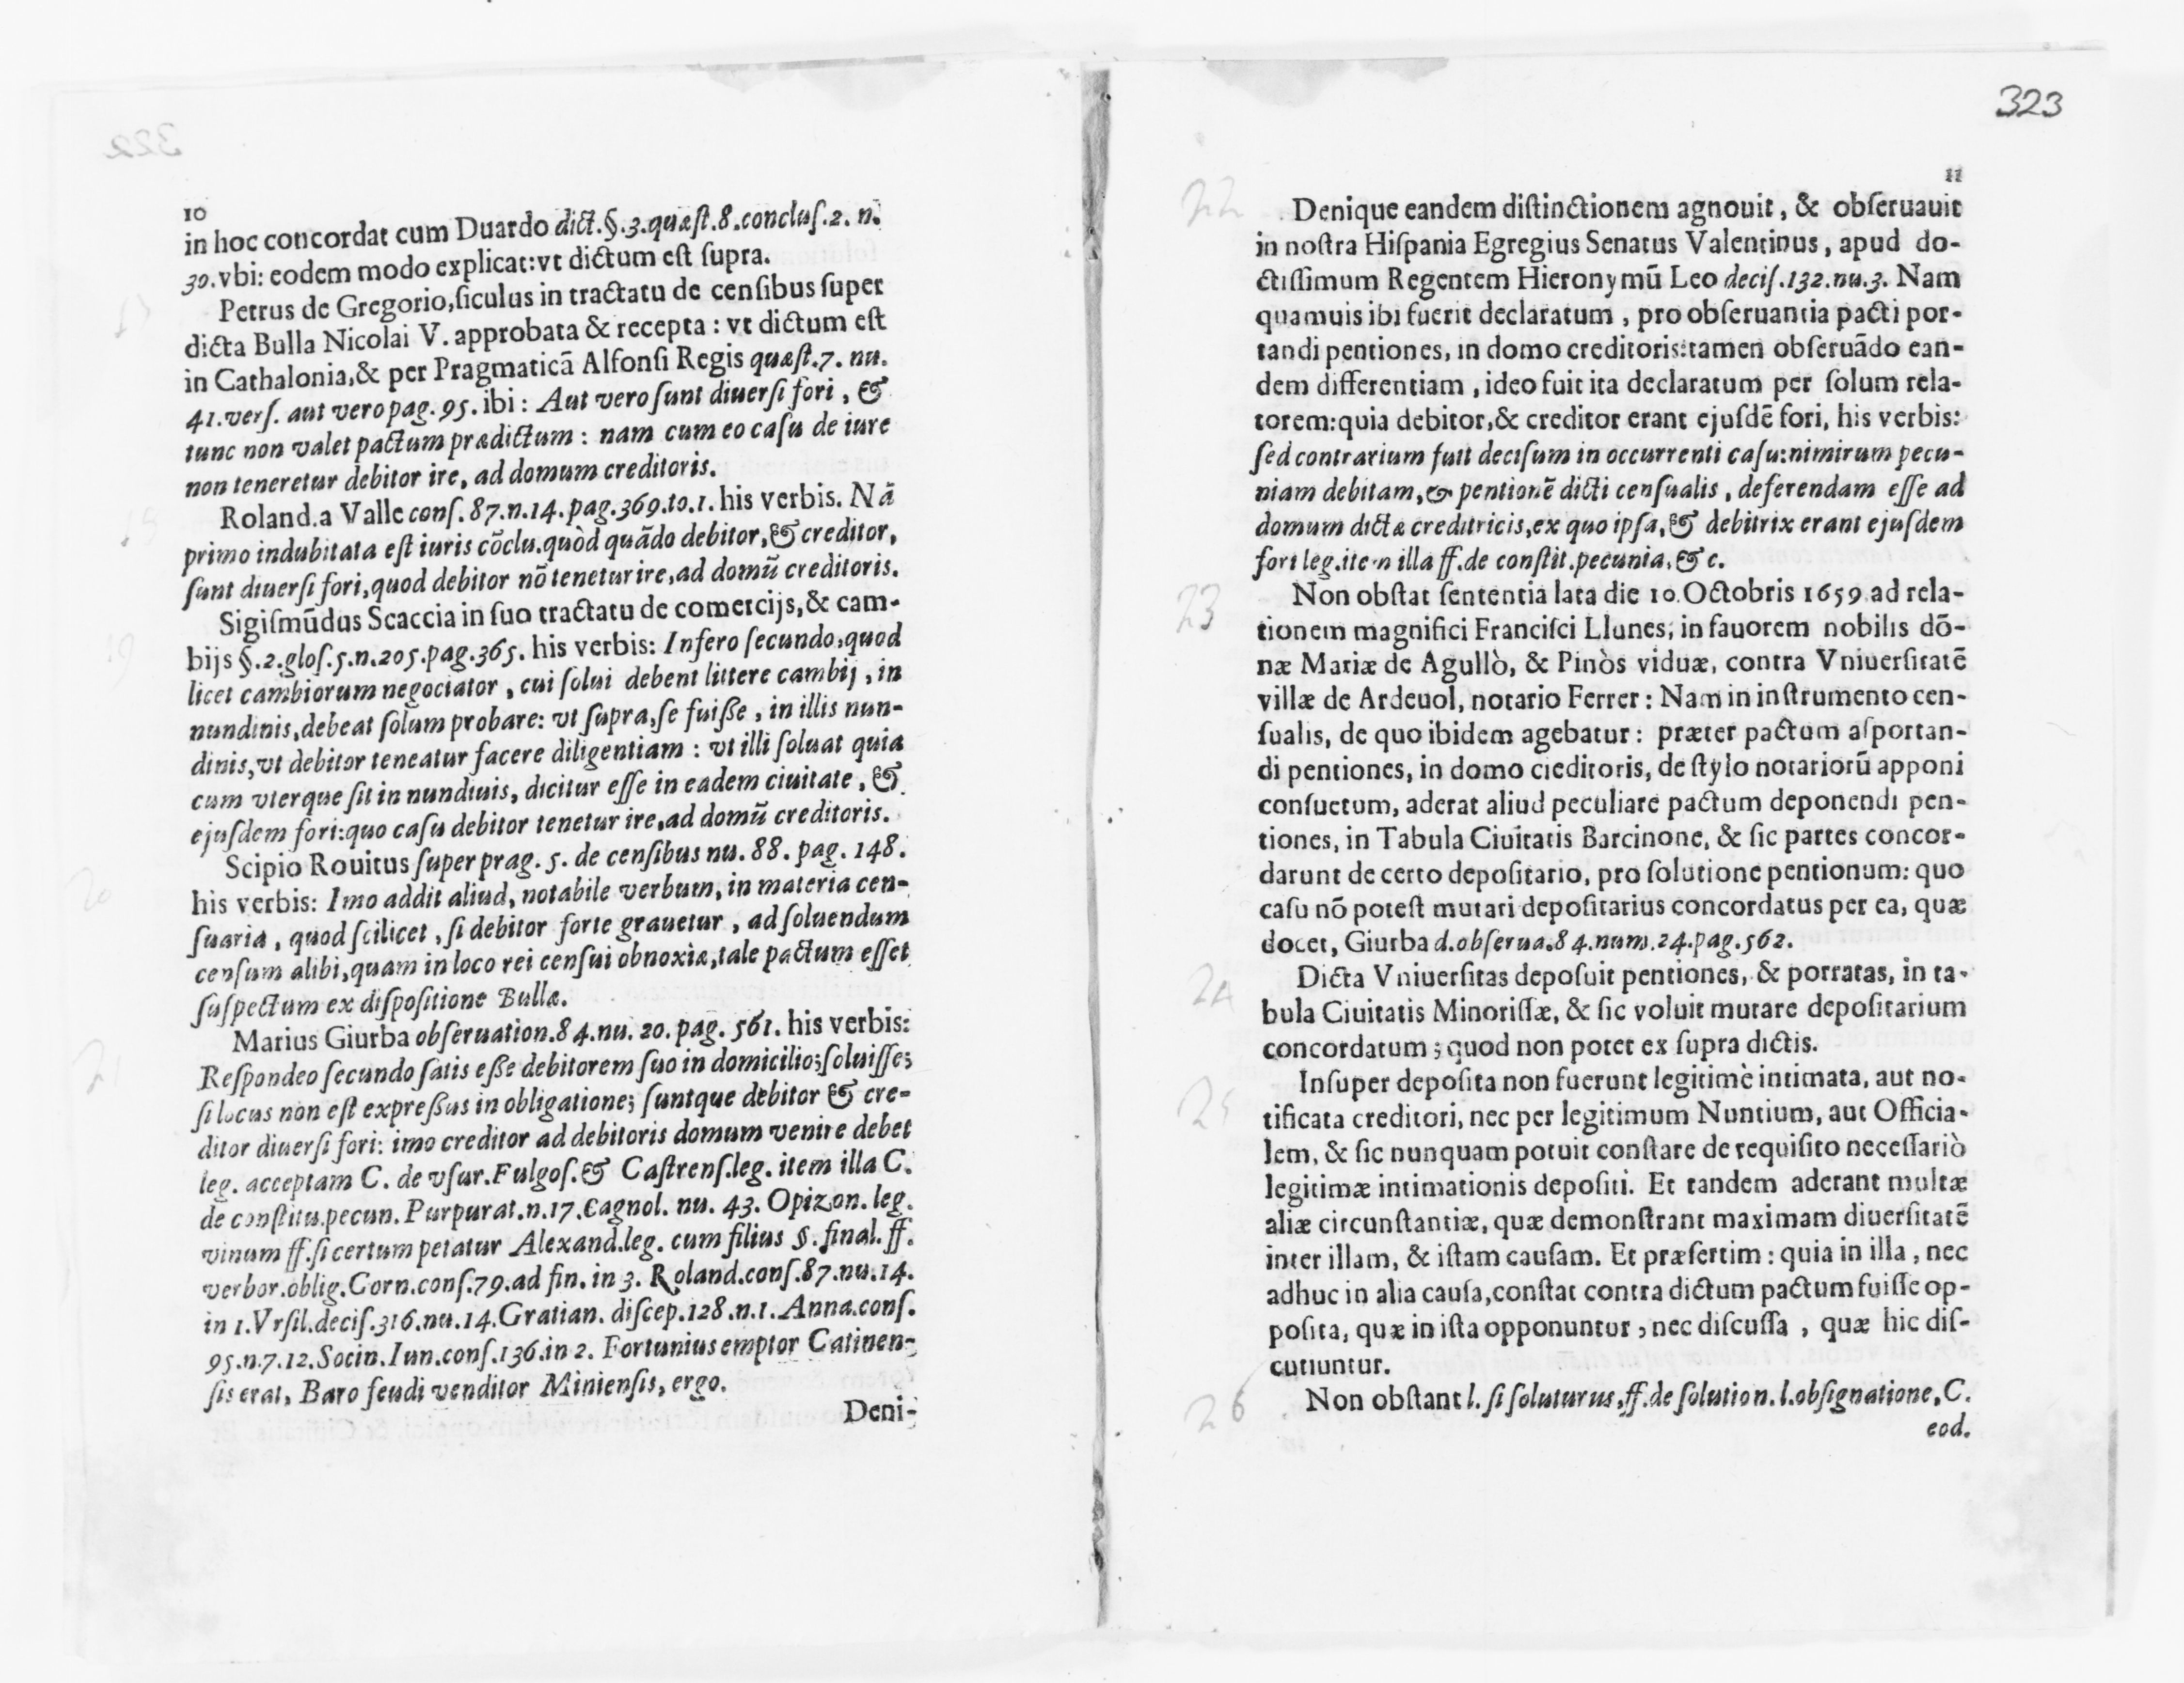 10
in hoc concordat cum Duardo dict.§.3.quæſt.8.concluſ.2. n.
39.vbi: eodem modo explicat:vt dictum eſt ſupra.
Petrus de Gregorio,ſiculus in tractatu de cenſibus ſuper
dicta Bulla Nicolai V. approbata & recepta : vt dictum eſt
in Cathalonia,& per Pragmaticā Alfonſi Regis quæſt.7. nu.
41.verſ. aut vero pag.95. ibi : Aut vero ſunt diuerſi fori , &
tunc non valet pactum prædictum : nam cum eo caſu de iure
non teneretur debitor ire, ad domum creditoris.
Roland.a Valle conſ.87.n.14.pag.369.to.1. his verbis. Nā
primo indubitata eſt iuris cōclu.quòd quādo debitor,& creditor,
ſunt diuerſi fori,quod debitor nō tenetur ire,ad domū creditoris.
Sigiſmūdus Scaccia in ſuo tractatu de comercijs,& cam-
bijs §.2.gloſ.5.n.205.pag.365. his verbis: Infero ſecundo,quod
licet cambiorum negociator , cui ſolui debent littere cambij , in
nundinis,debeat ſolum probare: vt ſupra,ſe fuiſſe , in illis nun-
dinis,vt debitor teneatur facere diligentiam : vt illi ſoluat quia
cum vterque ſit in nundinis, dicitur eſſe in eadem ciuitate , &
ejuſdem fori:quo caſu debitor tenetur ire,ad domū creditoris.
Scipio Rouitus ſuper prag. 5. de cenſibus nu. 88. pag. 148.
his verbis: Imo addit aliud, notabile verbum, in materia cen-
ſuaria , quod ſcilicet , ſi debitor forte grauetur , ad ſoluendum
cenſum alibi,quam in loco rei cenſui obnoxiæ,tale pactum eſſet
ſuſpectum ex diſpoſitione Bullæ.
Marius Giurba obſeruation.84.nu. 20. pag. 561. his verbis:
Reſpondeo ſecundo ſatis eſſe debitorem ſuo in domicilio;ſoluiſſe;
ſi locus non eſt expreſſus in obligatione; ſuntque debitor & cre-
ditor diuerſi fori: imo creditor ad debitoris domum venire debet
leg. acceptam C. de vſur.Fulgoſ.& Caſtrenſ.leg. item illa C.
de conſtitu.pecun. Purpurat.n.17.Cagnol. nu. 43. Opizon. leg.
vinum ff.ſi certum petatur Alexand.leg. cum filius §. final. ff.
verbor.oblig.Corn.conſ.79.ad fin. in 3. Roland.conſ.87.nu.14.
in 1.Vrſil.deciſ.316.nu.14.Gratian. diſcep.128.n.1. Anna.conſ.
95.n.7.12.Socin.Iun.conſ.136.in 2. Fortunius emptor Catinen-
ſis erat, Baro feudi venditor Minienſis, ergo.
Deni-
323
11
22
Denique eandem diſtinctionem agnouit, & obſeruauit
in noſtra Hiſpania Egregius Senatus Valentinus, apud do-
ctiſſimum Regentem Hieronymū Leo deciſ.132.nu.3. Nam
quamuis ibi fuerit declaratum , pro obſeruantia pacti por-
tandi pentiones, in domo creditoris:tamen obſeruādo ean-
dem differentiam , ideo fuit ita declaratum per ſolum rela-
torem:quia debitor,& creditor erant ejuſdē fori, his verbis:
ſed contrarium fuit deciſum in occurrenti caſu:nimirum pecu-
niam debitam,& pentionē dicti cenſualis , deferendam eſſe ad
domum dictæ creditricis,ex quo ipſa,& debitrix erant ejuſdem
fori leg.item illa ff.de conſtit.pecunia,& c.
23
Non obſtat ſententia lata die 10.Octobris 1659.ad rela-
tionem magnifici Franciſci Llunes, in fauorem nobilis dō-
næ Mariæ de Agullò, & Pinòs viduæ, contra Vniuerſitatē
villæ de Ardeuol, notario Ferrer : Nam in inſtrumento cen-
ſualis, de quo ibidem agebatur : præter pactum aſportan-
di pentiones, in domo creditoris, de ſtylo notariorū apponi
conſuetum, aderat aliud peculiare pactum deponendi pen-
tiones, in Tabula Ciuitatis Barcinone, & ſic partes concor-
darunt de certo depoſitario, pro ſolutione pentionum: quo
caſu nō poteſt mutari depoſitarius concordatus per ea, quæ
docet, Giurba d.obſerua.84.num.24.pag.562.
24
Dicta Vniuerſitas depoſuit pentiones, & porratas, in ta-
bula Ciuitatis Minoriſſæ, & ſic voluit mutare depoſitarium
concordatum ; quod non potet ex ſupra dictis.
25
Inſuper depoſita non fuerunt legitimè intimata, aut no-
tificata creditori, nec per legitimum Nuntium, aut Officia-
lem, & ſic nunquam potuit conſtare de requiſito neceſſariò
legitimæ intimationis depoſiti. Et tandem aderant multæ
aliæ circunſtantiæ, quæ demonſtrant maximam diuerſitatē
inter illam, & iſtam cauſam. Et præſertim : quia in illa , nec
adhuc in alia cauſa,conſtat contra dictum pactum fuiſſe op-
poſita, quæ in iſta opponuntur , nec diſcuſſa , quæ hic diſ-
cutiuntur.
26
Non obſtant l. ſi ſoluturus,ff.de ſolution.l.obſignatione,C.
eod.